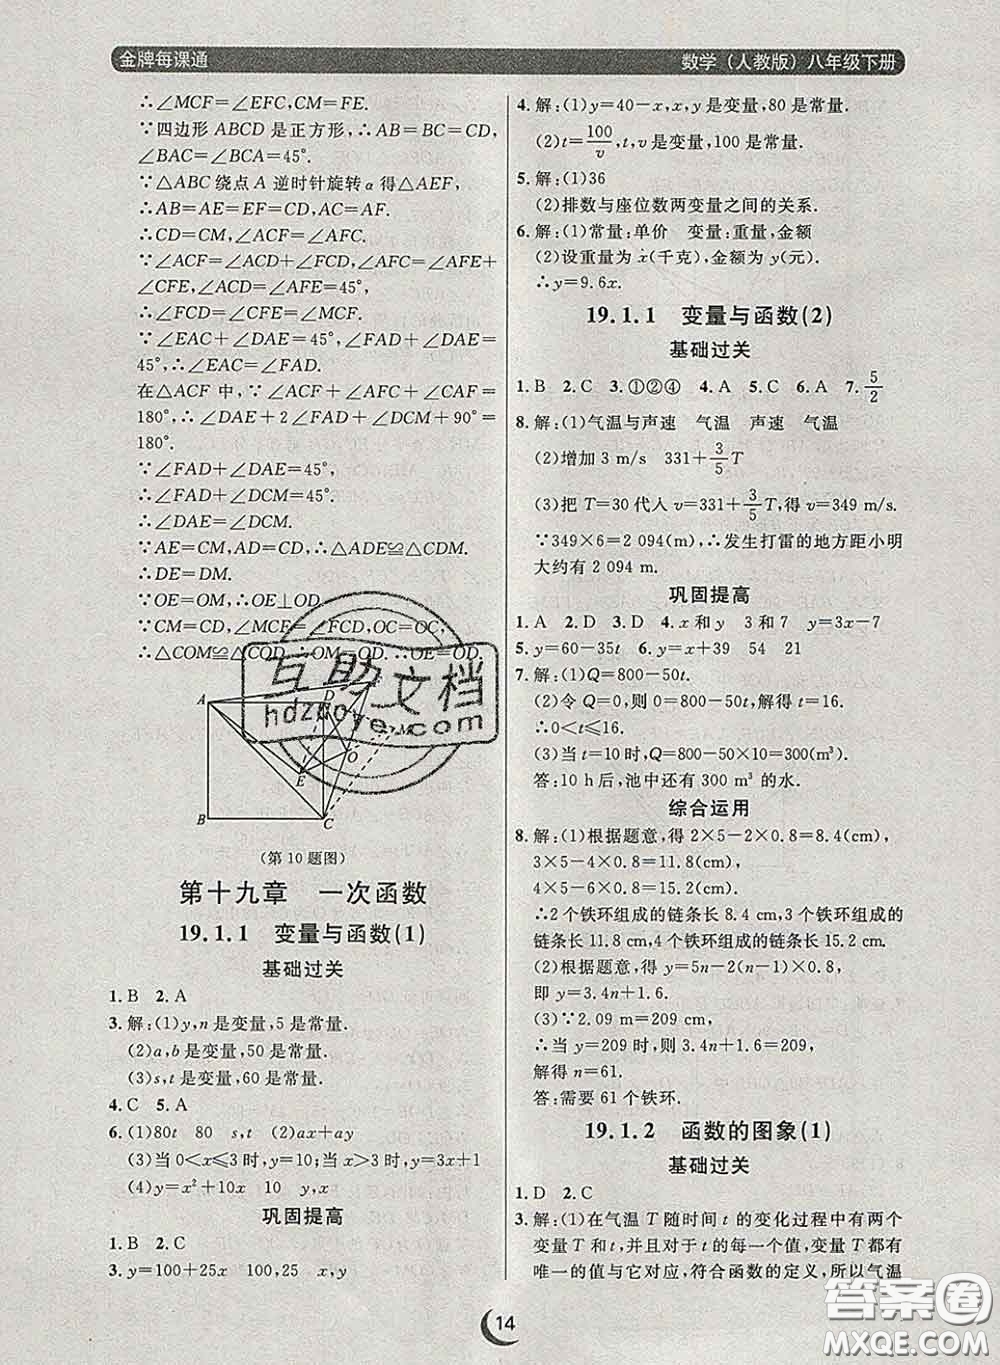 金牌每课通
数学(人教版)八年级下册
∴∠MCF=∠EFC,CM=FE.
∵四边形 ABCD 是正方形,∴AB=BC=CD,
∠BAC=∠BCA=45°.
∵△ABC 绕点 A 逆时针旋转 α 得△AEF,
∴AB=AE=EF=CD,AC=AF.
∴CD=CM,∠ACF=∠AFC.
∵∠ACF=∠ACD+∠FCD,∠AFC=∠AFE+
∠CFE,∠ACD=∠AFE=45°,
∴∠FCD=∠CFE=∠MCF.
∵∠EAC+∠DAE=45°,∠FAD+∠DAE=
45°,∴∠EAC=∠FAD.
在△ACF 中,∵∠ACF+∠AFC+∠CAF=
180°,∴∠DAE+2∠FAD+∠DCM+90°=
180°.
∵∠FAD+∠DAE=45°,
∴∠FAD+∠DCM=45°.
∴∠DAE=∠DCM.
∵AE=CM,AD=CD,∴△ADE≌△CDM.
∴DE=DM.
∵OE=OM,∴OE⊥OD.
∵CM=CD,∠MCF=∠FCD,OC=OC,
∴△COM≌△COD.∴OM=OD.∴OE=OD.
A
D
F
M
O
E
B
C
(第 10 题图)
第十九章 一次函数
19.1.1 变量与函数(1)
基础过关
1.B 2.A
3.解:(1)y,n 是变量,5 是常量.
(2)a,b 是变量,50 是常量.
(3)s,t 是变量,60 是常量.
4.C 5.A
6.(1)80t 80 s,t (2)ax+ay
(3)当 0<x≤3 时,y=10 当 x>3 时,y=3x+1
(4)y=x²+10x y,x
巩固提高
1.B 2.C
3.y=100+25x 100,25 x,y
4.解:(1)y=40-x,x,y 是变量,80 是常量.
(2)t=100/v,t,v 是变量,100 是常量.
5.解:(1)36
(2)排数与座位数两变量之间的关系.
6.解:(1)常量:单价 变量:重量,金额
(2)设重量为 x(千克),金额为 y(元).
∴y=9.6x.
19.1.1 变量与函数(2)
基础过关
1.B 2.C 3.①②④ 4.A 5.C 6.A 7.5/2
8.解:(1)气温与声速 气温 声速 气温
(2)增加 3 m/s 331+3/5T
(3)把 T=30 代人 v=331+3/5T,得 v=349 m/s.
∵349×6=2 094(m),∴发生打雷的地方距小明
大约有 2 094 m.
巩固提高
1.A 2.D 3.D 4.x 和 y 3 和 7 y=3x-7
5.y=60-35t 6.y=x+39 54 21
7.解:(1)Q=800-50t.
(2)令 Q=0,则 0=800-50t,解得 t=16.
∴0<t≤16.
(3)当 t=10 时,Q=800-50×10=300(m³).
答:10 h 后,池中还有 300 m³ 的水.
综合运用
8.解:(1)根据题意,得 2×5-2×0.8=8.4(cm),
3×5-4×0.8=11.8(cm),
4×5-6×0.8=15.2(cm).
∴2 个铁环组成的链条长 8.4 cm,3 个铁环组成的
链条长 11.8 cm,4 个铁环组成的链条长 15.2 cm.
(2)根据题意,得 y=5n-2(n-1)×0.8,
即 y=3.4n+1.6.
(3)∵2.09 m=209 cm,
∴当 y=209 时,则 3.4n+1.6=209,
解得 n=61.
答:需要 61 个铁环.
19.1.2 函数的图象(1)
基础过关
1.D 2.C
3.解:(1)在气温 T 随时间 t 的变化过程中有两个
变量 T 和 t,并且对于 t 的每一个值,变量 T 都有
唯一的值与它对应,符合函数的定义,所以气温
14
互助文档
hdzuoye.com
答案圈
MXQE.COM